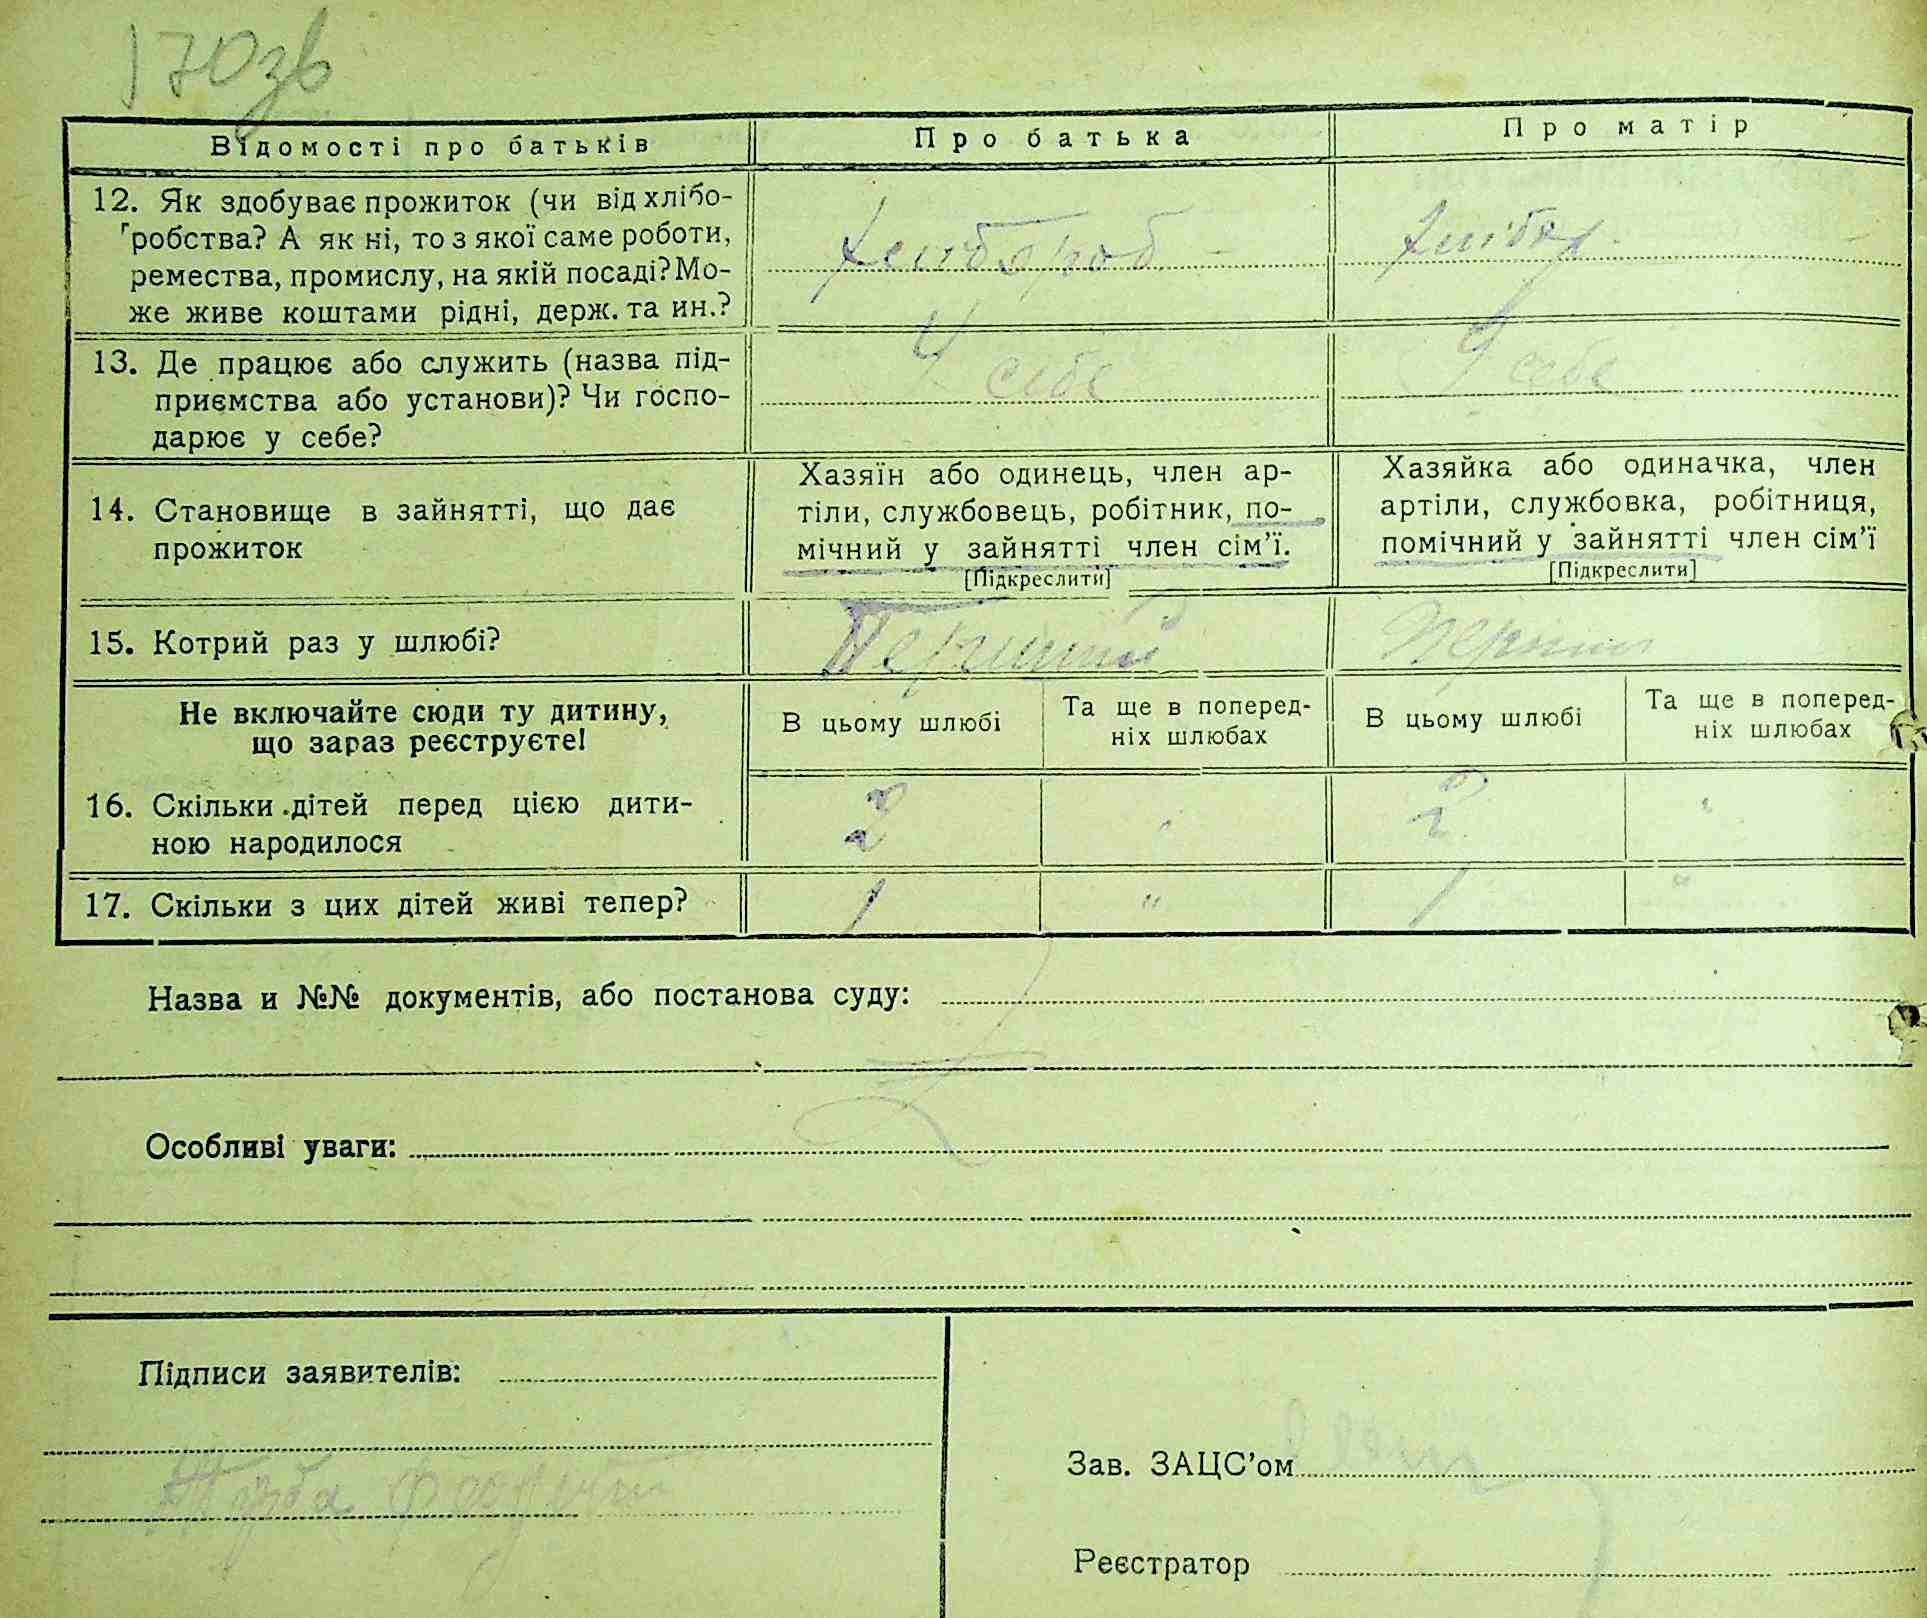 170зв
Відомості про батьків
Про батька
Про матір
12. Як здобуває прожиток (чи від хлібо-
робства? А як ні, то з якої саме роботи,
ремества, промислу, на якій посаді? Мо-
же живе коштами рідні, держ. та ин.?
хлібороб
13. Де працює або служить (назва під-
приємства або установи)? Чи госпо-
дарює у себе?
У себе
У себе
14. Становище в зайнятті, що дає
прожиток
Хазяїн або одинець, член ар-
тіли, службовець, робітник, по-
мічний у зайнятті член сім’ї.
[Підкреслити]
Хазяйка або одиначка, член
артіли, службовка, робітниця,
помічний у зайнятті член сім’ї
[Підкреслити]
15. Котрий раз у шлюбі?
Не включайте сюди ту дитину,
що зараз реєструєте!
В цьому шлюбі
Та ще в поперед-
ніх шлюбах
В цьому шлюбі
Та ще в поперед-
ніх шлюбах
16. Скільки дітей перед цією дити-
ною народилося
2
"
2
"
17. Скільки з цих дітей живі тепер?
1
"
1
"
Назва и №№ документів, або постанова суду:
Особливі уваги:
Підписи заявителів:
Зав. ЗАЦС’ом
Реєстратор